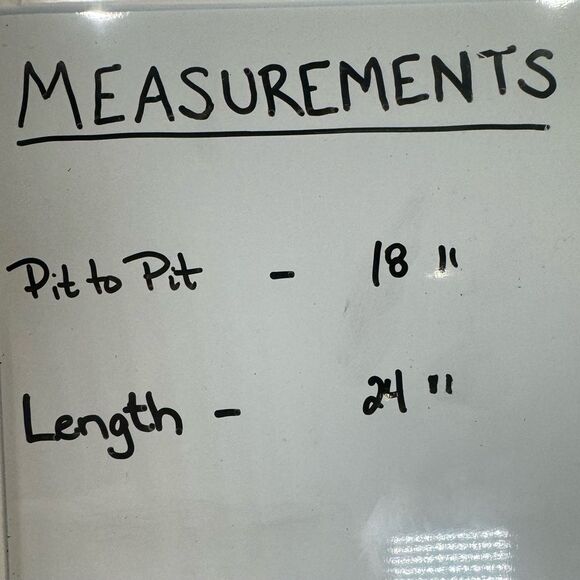 MEASUREMENTS
Pit to Pit - 18 "
Length - 24 "